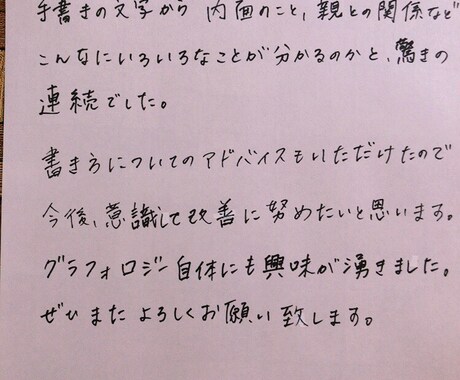 手書きの文字から 内面のこと,親との関係など
こんなにいろいろなことが分かるのかと、驚きの
連続でした。
書き方についてのアドバイスもいただけたので
今後、意識して改善に努めたいと思います。
グラフォロジー自体にも興味が湧きました。
ぜひまたよろしくお願い致します。